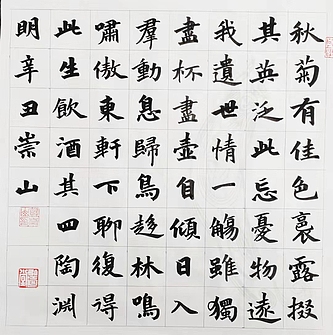 秋菊有佳色裛露掇
其英泛此忘憂物遠
我遺世情一觴雖獨
盡杯盡壺自傾日入
羣動息歸鳥趨林鳴
嘯傲東軒下聊復得
此生飲酒其四陶淵
明辛丑崇山